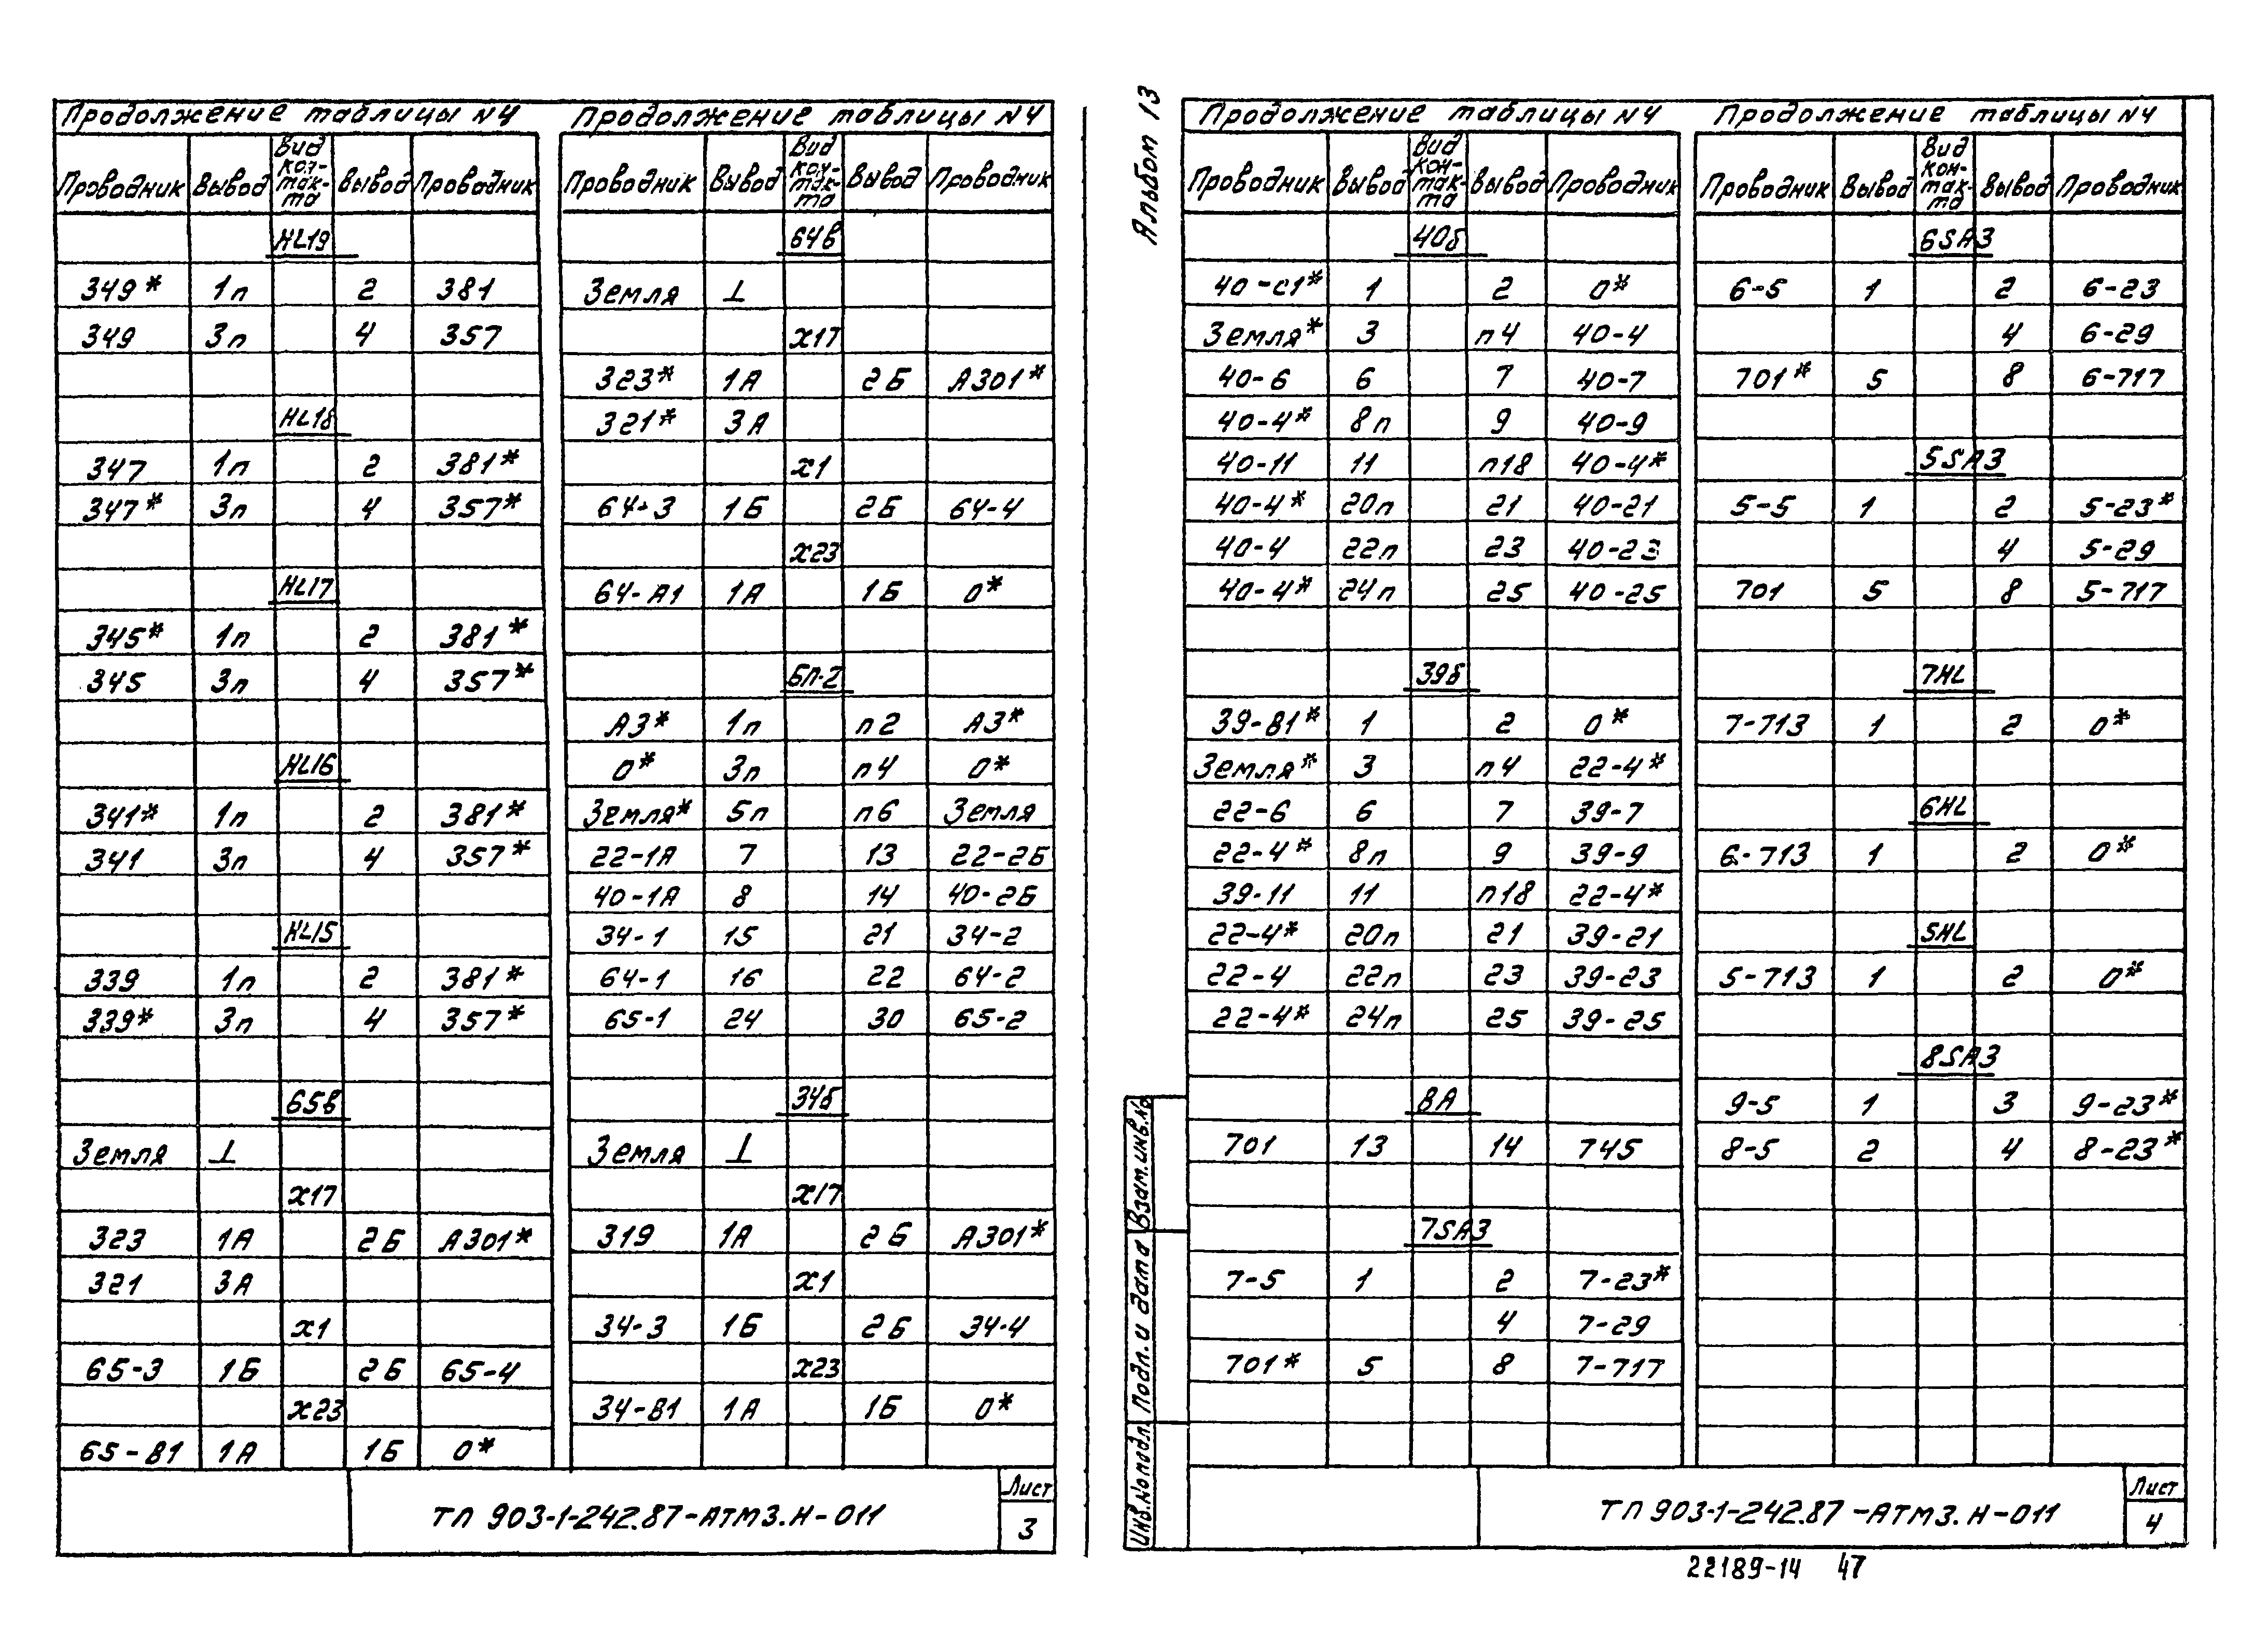 Продолжение таблицы N4
Проводник Вывод Вид кон-так-та Вывод Проводник
HL19
349* 1п 2 381
349 3п 4 357
HL18
347 1п 2 381*
347* 3п 4 357*
HL17
345* 1п 2 381*
345 3п 4 357*
HL16
341* 1п 2 381*
341 3п 4 357*
HL15
339 1п 2 381*
339* 3п 4 357*
65в
Земля ⊥
х17
323 1А 2Б А301*
321 3А
х1
65-3 1Б 2Б 65-4
х23
65-В1 1А 1Б 0*
Продолжение таблицы N4
Проводник Вывод Вид кон-так-та Вывод Проводник
64в
Земля ⊥
х17
323* 1А 2Б А301*
321* 3А
х1
64-3 1Б 2Б 64-4
х23
64-А1 1А 1Б 0*
БП-2
А3* 1п п2 А3*
0* 3п п4 0*
Земля* 5п п6 Земля
22-1А 7 13 22-2Б
40-1А 8 14 40-2Б
34-1 15 21 34-2
64-1 16 22 64-2
65-1 24 30 65-2
34б
Земля ⊥
х17
319 1А 2Б А301*
х1
34-3 1Б 2Б 34-4
х23
34-В1 1А 1Б 0*
ТП 903-1-242.87-АТМ3.Н-011
Лист
3
Альбом 13
Продолжение таблицы N4
Проводник Вывод Вид кон-так-та Вывод Проводник
40б
40-С1* 1 2 0*
Земля* 3 п4 40-4
40-6 6 7 40-7
40-4* 8п 9 40-9
40-11 11 п18 40-4*
40-4* 20п 21 40-21
40-4 22п 23 40-23
40-4* 24п 25 40-25
39б
39-В1* 1 2 0*
Земля* 3 п4 22-4*
22-6 6 7 39-7
22-4* 8п 9 39-9
39-11 11 п18 22-4*
22-4* 20п 21 39-21
22-4 22п 23 39-23
22-4* 24п 25 39-25
8А
701 13 14 745
7SA3
7-5 1 2 7-23*
4 7-29
701* 5 8 7-717
Продолжение таблицы N4
Проводник Вывод Вид кон-так-та Вывод Проводник
6SA3
6-5 1 2 6-23
4 6-29
701* 5 8 6-717
5SA3
5-5 1 2 5-23*
4 5-29
701 5 8 5-717
7HL
7-713 1 2 0*
6HL
6-713 1 2 0*
5HL
5-713 1 2 0*
8SA3
9-5 1 3 9-23*
8-5 2 4 8-23*
Инв.№подл. Подл. и дата Взам.инв.№
ТП 903-1-242.87-АТМ3.Н-011
Лист
4
22189-14 47